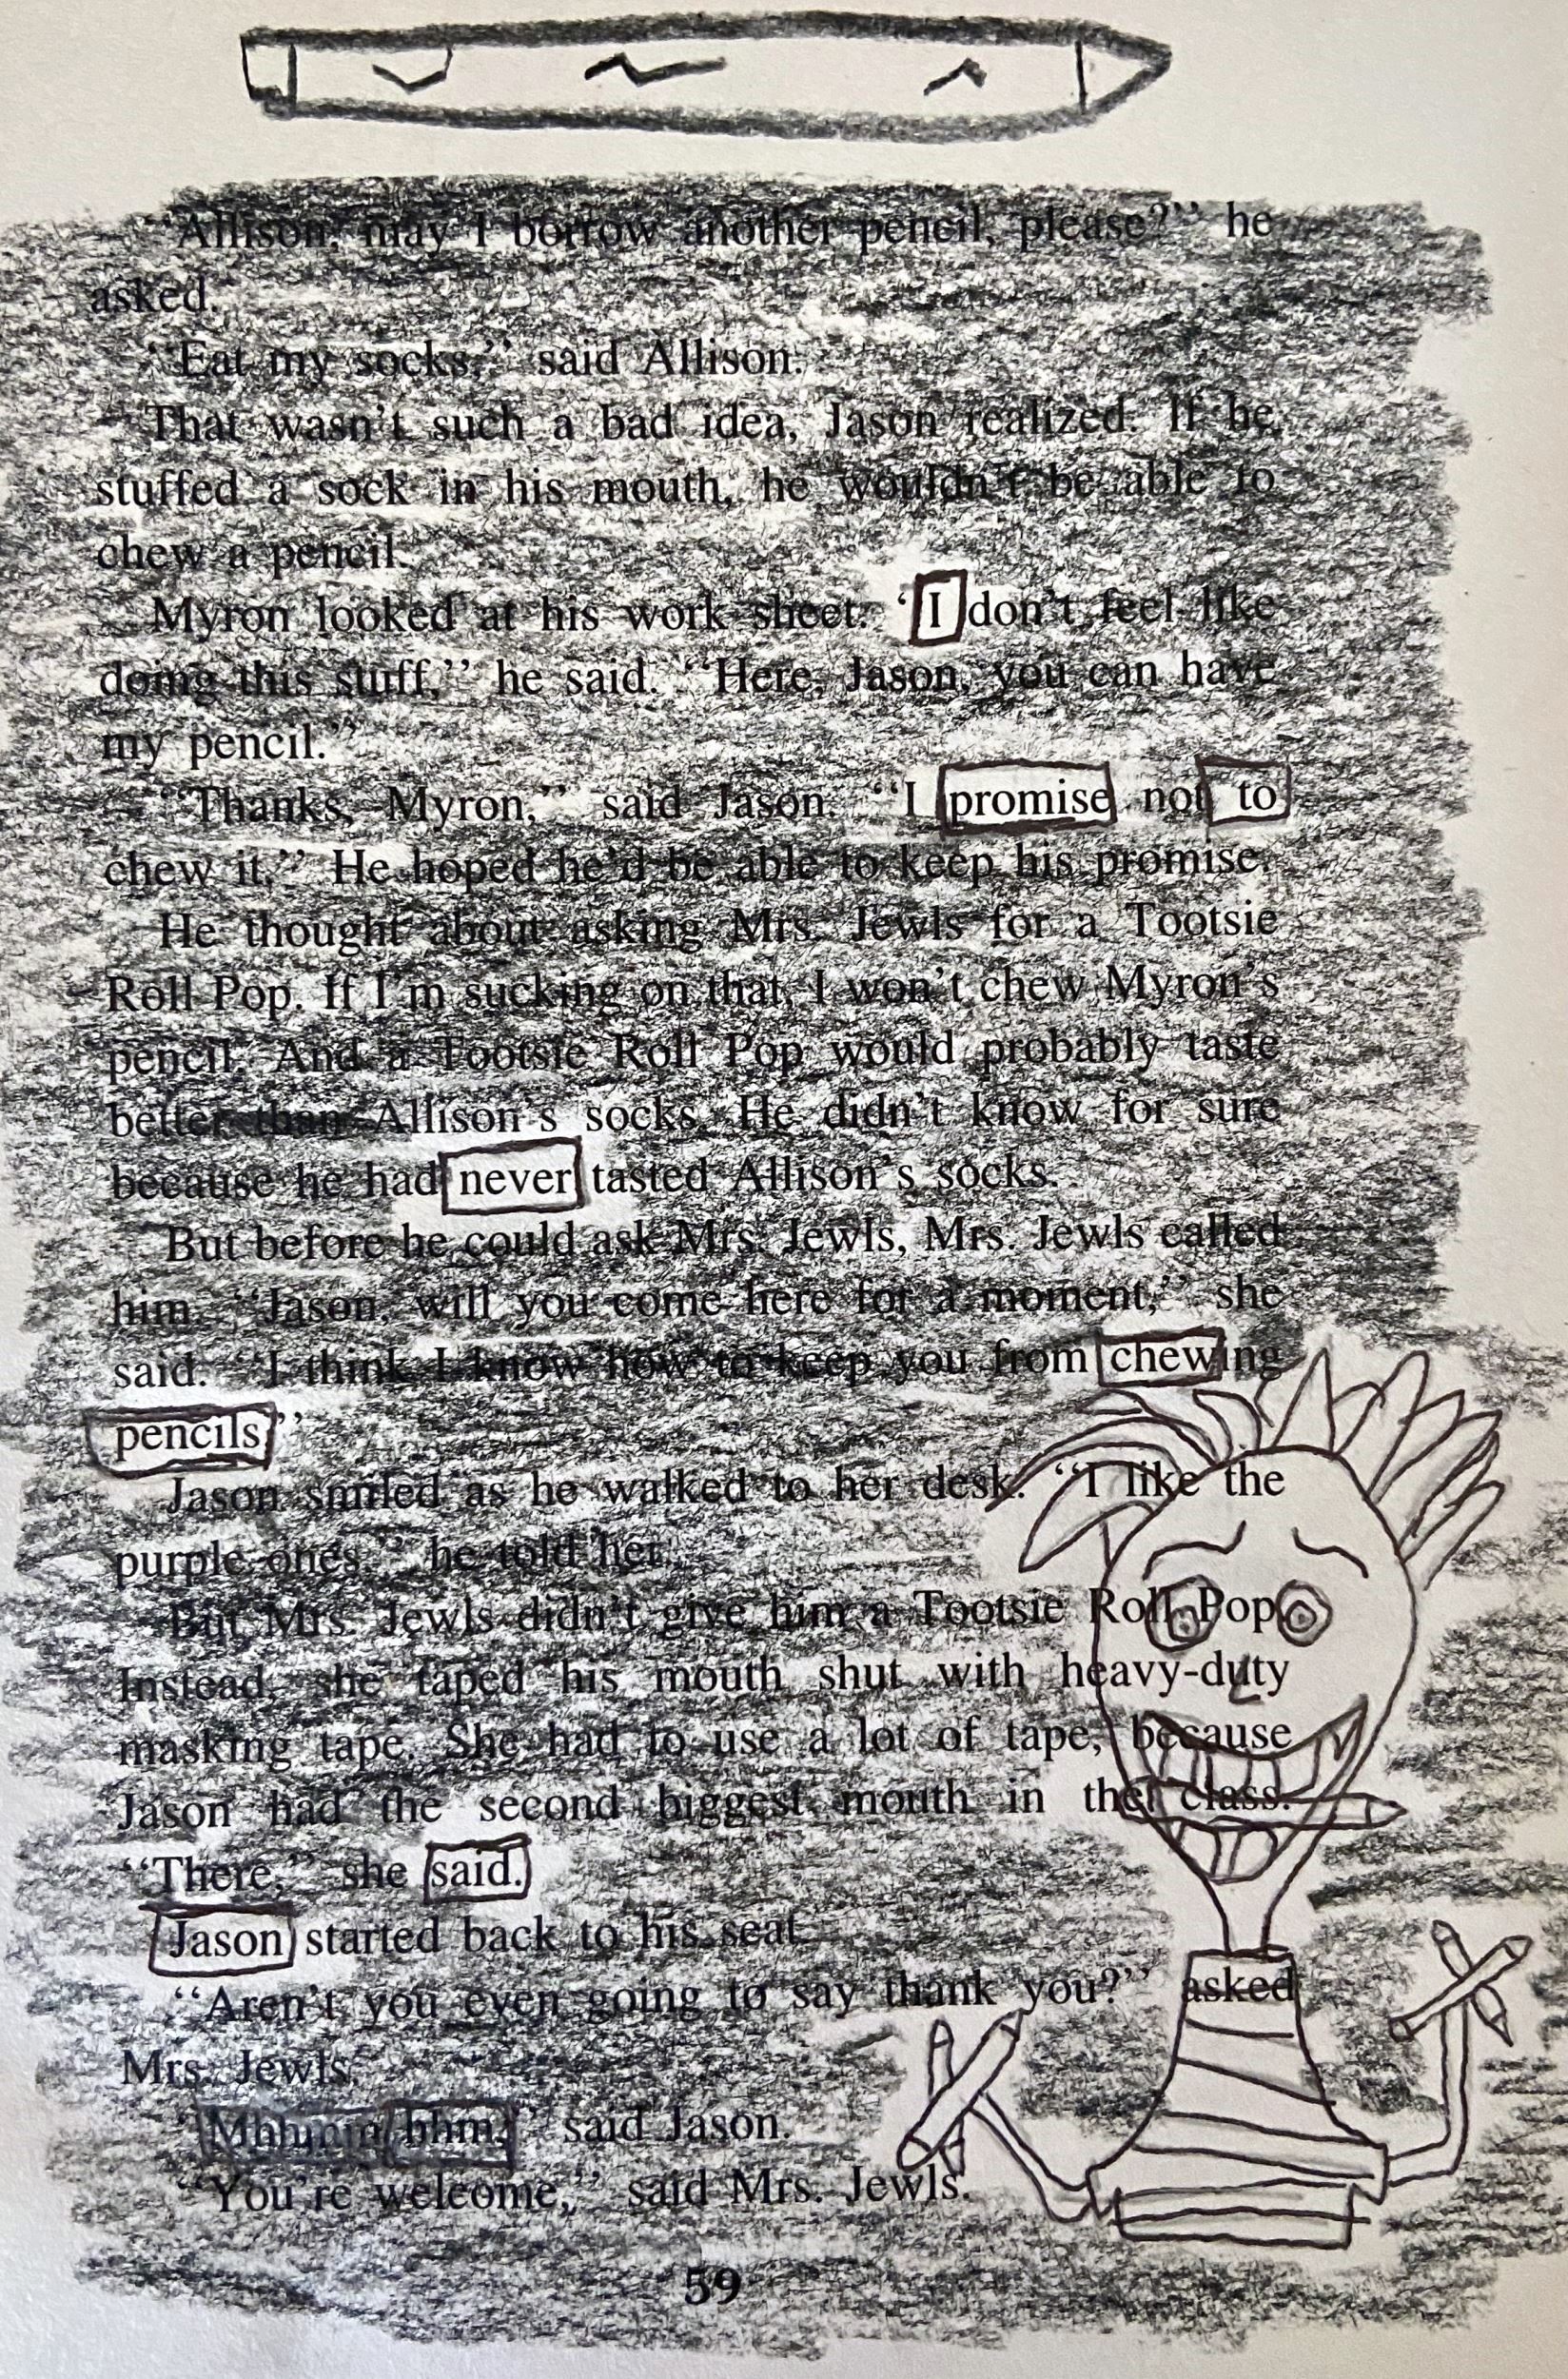 "Allison, may I borrow another pencil, please?" he
asked.
"Eat my socks," said Allison.
That wasn't such a bad idea, Jason realized. If he
stuffed a sock in his mouth, he wouldn't be able to
chew a pencil.
Myron looked at his work sheet. "I don't feel like
doing this stuff," he said. "Here, Jason, you can have
my pencil."
"Thanks, Myron," said Jason. "I promise not to
chew it." He hoped he'd be able to keep his promise.
He thought about asking Mrs. Jewls for a Tootsie
Roll Pop. If I'm sucking on that, I won't chew Myron's
pencil. And a Tootsie Roll Pop would probably taste
better than Allison's socks. He didn't know for sure
because he had never tasted Allison's socks.
But before he could ask Mrs. Jewls, Mrs. Jewls called
him. "Jason, will you come here for a moment," she
said. "I think I know how to keep you from chewing
pencils."
Jason smiled as he walked to her desk. "I like the
purple ones," he told her.
But Mrs. Jewls didn't give him a Tootsie Roll Pop.
Instead, she taped his mouth shut with heavy-duty
masking tape. She had to use a lot of tape, because
Jason had the second biggest mouth in the class.
"There," she said.
Jason started back to his seat.
"Aren't you even going to say thank you?" asked
Mrs. Jewls.
said Jason.
"You're welcome," said Mrs. Jewls.
59